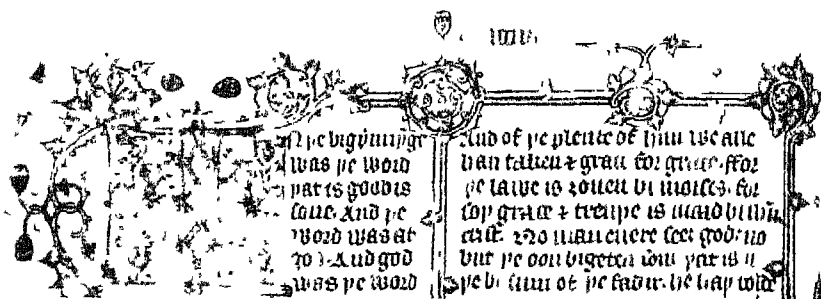 N þe bigynnyge
was þe word
þat is goddis
sone. And þe
word was at
god. And god
was þe word
And of þe plente of him we alle
han taken & grace for grace. ffor
þe lawe is ȝouen bi moises. for
soþ grace & treuþe is maid bi
crist. No man euere seeȝ god: no
but þe oon bigeten sone þat is
þe of þe fadir. he haþ told